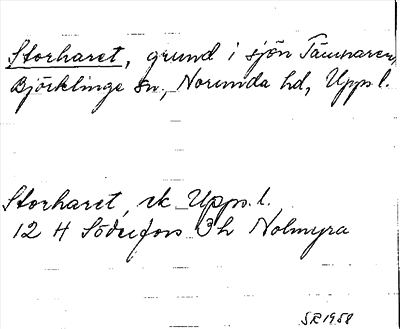 Storharet, grund i sjön Tämnaren,
Björklinge sn., Norunda hd, Uppl.
Storharet, ek Uppl.
12 H Söderfors 3h Nolmyra
SR 1958